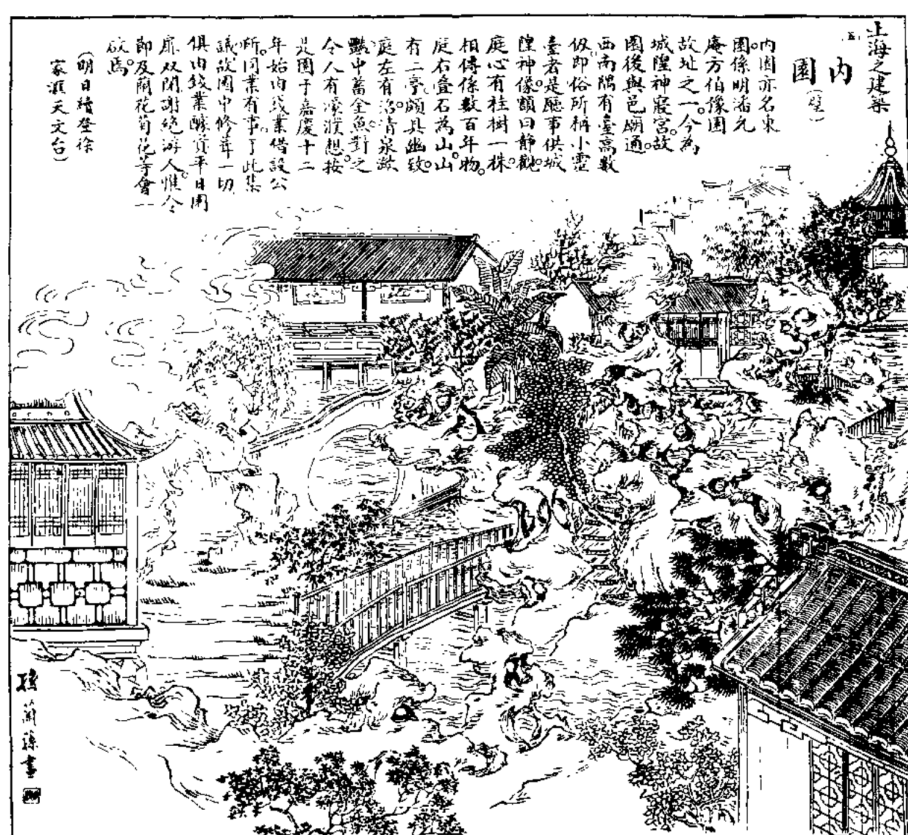 上海之建築
五
內園
內園亦名東
園。係明潘允
庵方伯豫園
故址之一。今為
城隍神寢宮。故
園後與邑廟通。
西南隅有臺高數
仞。即俗所稱小靈
臺者是。廳事供城
隍神像。顏曰靜觀。
庭心有桂樹一株。
相傳係數百年物。
庭右叠石為山。山
有二亭。頗具幽致。
庭左有沼。清泉激
灩。中蓄金魚。對之
令人有濠濮想。按
是園于嘉慶十二
年始由錢業借設公
所。同業有事。于此集
議。故園中修葺一切
俱由錢業醵資。平日園
扉双閉。謝絕游人。惟令
節及蘭花菊花等會一
啟焉。
（明日續登徐
家滙天文台）
孫蘭蓀畫